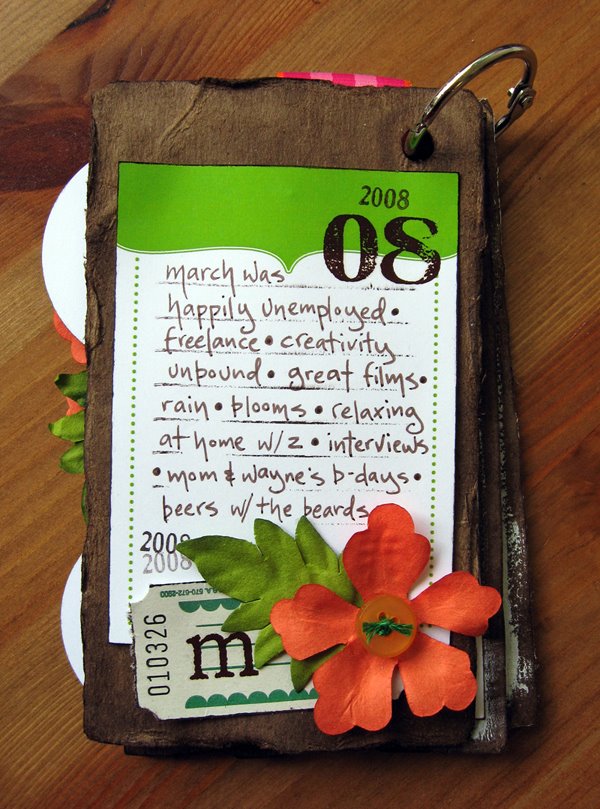 2008
08
march was
happily unemployed •
freelance • creativity
unbound • great films •
rain • blooms • relaxing
at home w/z • interviews
• mom & wayne's b-days •
beers w/ the beards
2008
2008
010326
m